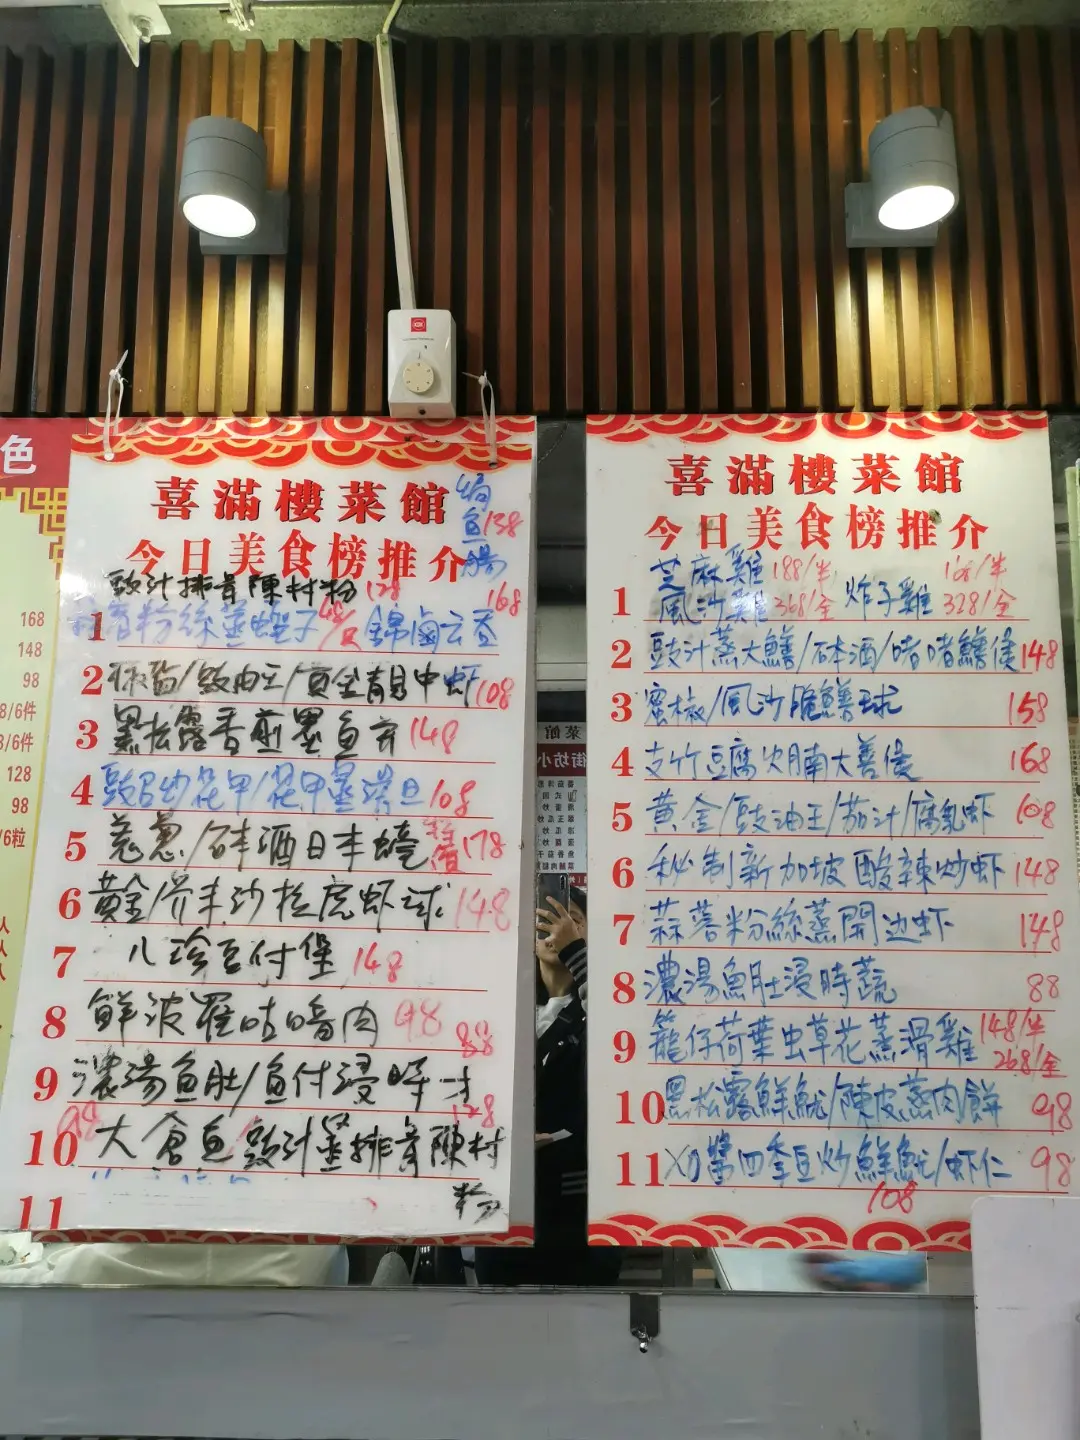 色
168
148
98
8/6件
8/6件
128
98
/6粒
喜滿樓菜館
今日美食榜推介
魚138
腸
豉汁排骨陳村粉 128
1 粉絲蒸蟶子 48/只 錦鹵云吞 168
2 椒鹽/豉油王/黃金青目中虾 108
3 黑松露香煎墨魚 148
4 花甲/花甲蒸 108
5 姜葱/砵酒日本蠔 178
6 黃金/芥末沙拉虎虾球 148
7 八珍豆付堡 148
8 鮮波羅咕嚕肉 98
88
9 濃湯魚肚/魚付浸
98 128
10 大倉魚豉汁蒸排骨陳村
粉
11
菜館
街坊小
喜滿樓菜館
今日美食榜推介
芝麻雞 188/半 168/半
1 風沙雞 368/全 炸子雞 328/全
2 豉汁蒸大鱔/砵酒/啫啫鱔煲 148
3 蜜椒/風沙脆鱔球 158
4 支竹豆腐火腩大善煲 168
5 黃金/豉油王/茄汁/腐乳虾 108
6 秘制新加坡酸辣炒虾 148
7 蒜蓉粉絲蒸開边虾 148
8 濃湯魚肚浸時蔬 88
9 籠仔荷葉虫草花蒸滑雞 148/半
268/全
10 黑松露鮮魷/陳皮蒸肉餅 98
11 XO醬四季豆炒鮮魷/虾仁 98
108